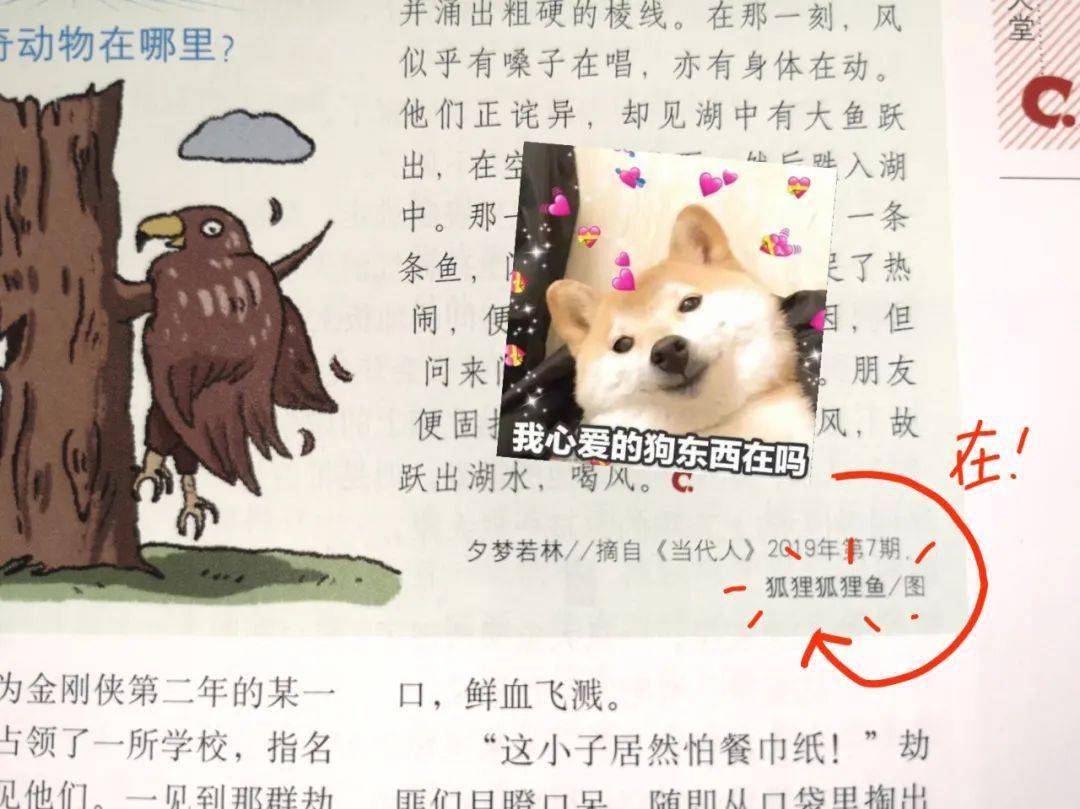 奇动物在哪里？
并涌出粗硬的棱线。在那一刻，风
似乎有嗓子在唱，亦有身体在动。
他们正诧异，却见湖中有大鱼跃
出，在空 然后跌入湖
中。那一 一条
条鱼， 了热
闹，便 因，但
问来 。朋友
便固 风，故
跃出湖水，喝风。
我心爱的狗东西在吗
在！
夕梦若林//摘自《当代人》2019年第7期，
狐狸狐狸鱼/图
为金刚侠第二年的某一
占领了一所学校，指名
见他们。一见到那群劫
口，鲜血飞溅。
“这小子居然怕餐巾纸！”劫
匪们目瞪口呆，随即从口袋里掏出
堂
C.